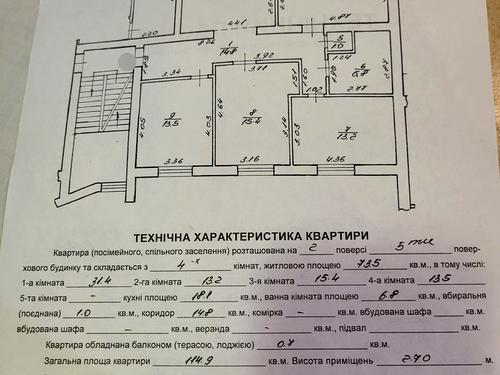 2.20
4.41
4.87
8.26
1
14.8
5
1.0
3.92
3.71
1.24
6
6.8
1.83
3.34
1.51
1.60
1.90
1.02
2.77
4.05
9
13.5
4.03
4.64
8
15.4
3.14
3.03
7
13.2
3.36
3.16
4.36
ТЕХНІЧНА ХАРАКТЕРИСТИКА КВАРТИРИ
Квартира (посімейного, спільного заселення) розташована на 2 поверсі 5 ти повер-
хового будинку та складається з 4-х кімнат, житловою площею 73.5 кв.м., в тому числі:
1-а кімната 31.4 кв.м. 2-га кімната 13.2 кв.м. 3-я кімната 15.4 кв.м. 4-а кімната 13.5 кв.м.
5-та кімната - кв.м. кухні площею 18.1 кв.м., ванна кімната площею 6.8 кв.м., вбиральня
(поєднана) 1.0 кв.м., коридор 14.8 кв.м., комірка - кв.м. вбудована шафа кв.м.
вбудована шафа - кв.м., веранда - кв.м., підвал кв.м.
Квартира обладнана балконом (терасою, лоджією) 0.7 кв.м.
Загальна площа квартири 114.9 кв.м. Висота приміщень 2.70 м.